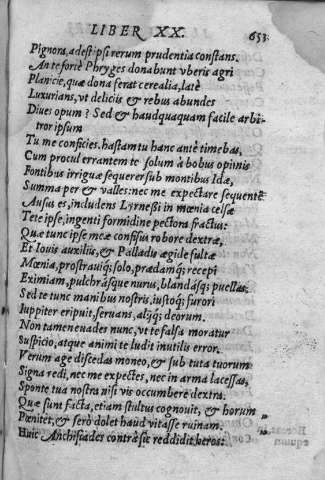 LIBER XX. 653
Pignora, adest ipsi rerum prudentia constans.
An te fortè Phryges donabunt vberis agri
Planicie, quæ dona ferat cerealia, latè
Luxurians, vt deliciis & rebus abundes
Diues opum? Sed & haudquaquam facile arbi-
tror ipsum
Tu me conficies. hasta tu hanc antè timebas,
Cum procul errantem te solum à bobus opimis
Fontibus irriguæ sequerer sub montibus Idæ,
Summa per & valles: nec me expectare sequentē
Ausus es, includens Lyrneßi in mœnia celsæ
Tete ipse, ingenti formidine pectora fractus:
Quæ tunc ipse meæ confisus robore dextræ,
Et Iouis auxiliis, & Palladis ægide fultæ
Mœnia, prostrauiq; solo, prædamq; recepi
Eximiam, pulchrásque nurus, blandásq; puellas.
Sed te tunc manibus nostris, iustoq; furori
Iuppiter eripuit, seruans, aliiq; deorum.
Non tamen euades nunc, vt te falsa moratur
Suspicio, atque animi te ludit inutilis error.
Verum age discedas moneo, & sub tuta tuorum
Signa redi, nec me expectes, nec in arma lacessas,
Sponte tua nostra nisi vis occumbere dextra.
Quæ sunt facta, etiam stultus cognouit, & horum
Pœnitet, & serò dolet haud vitasse ruinam.
Huic Anchisiades contrà sic reddidit heros: